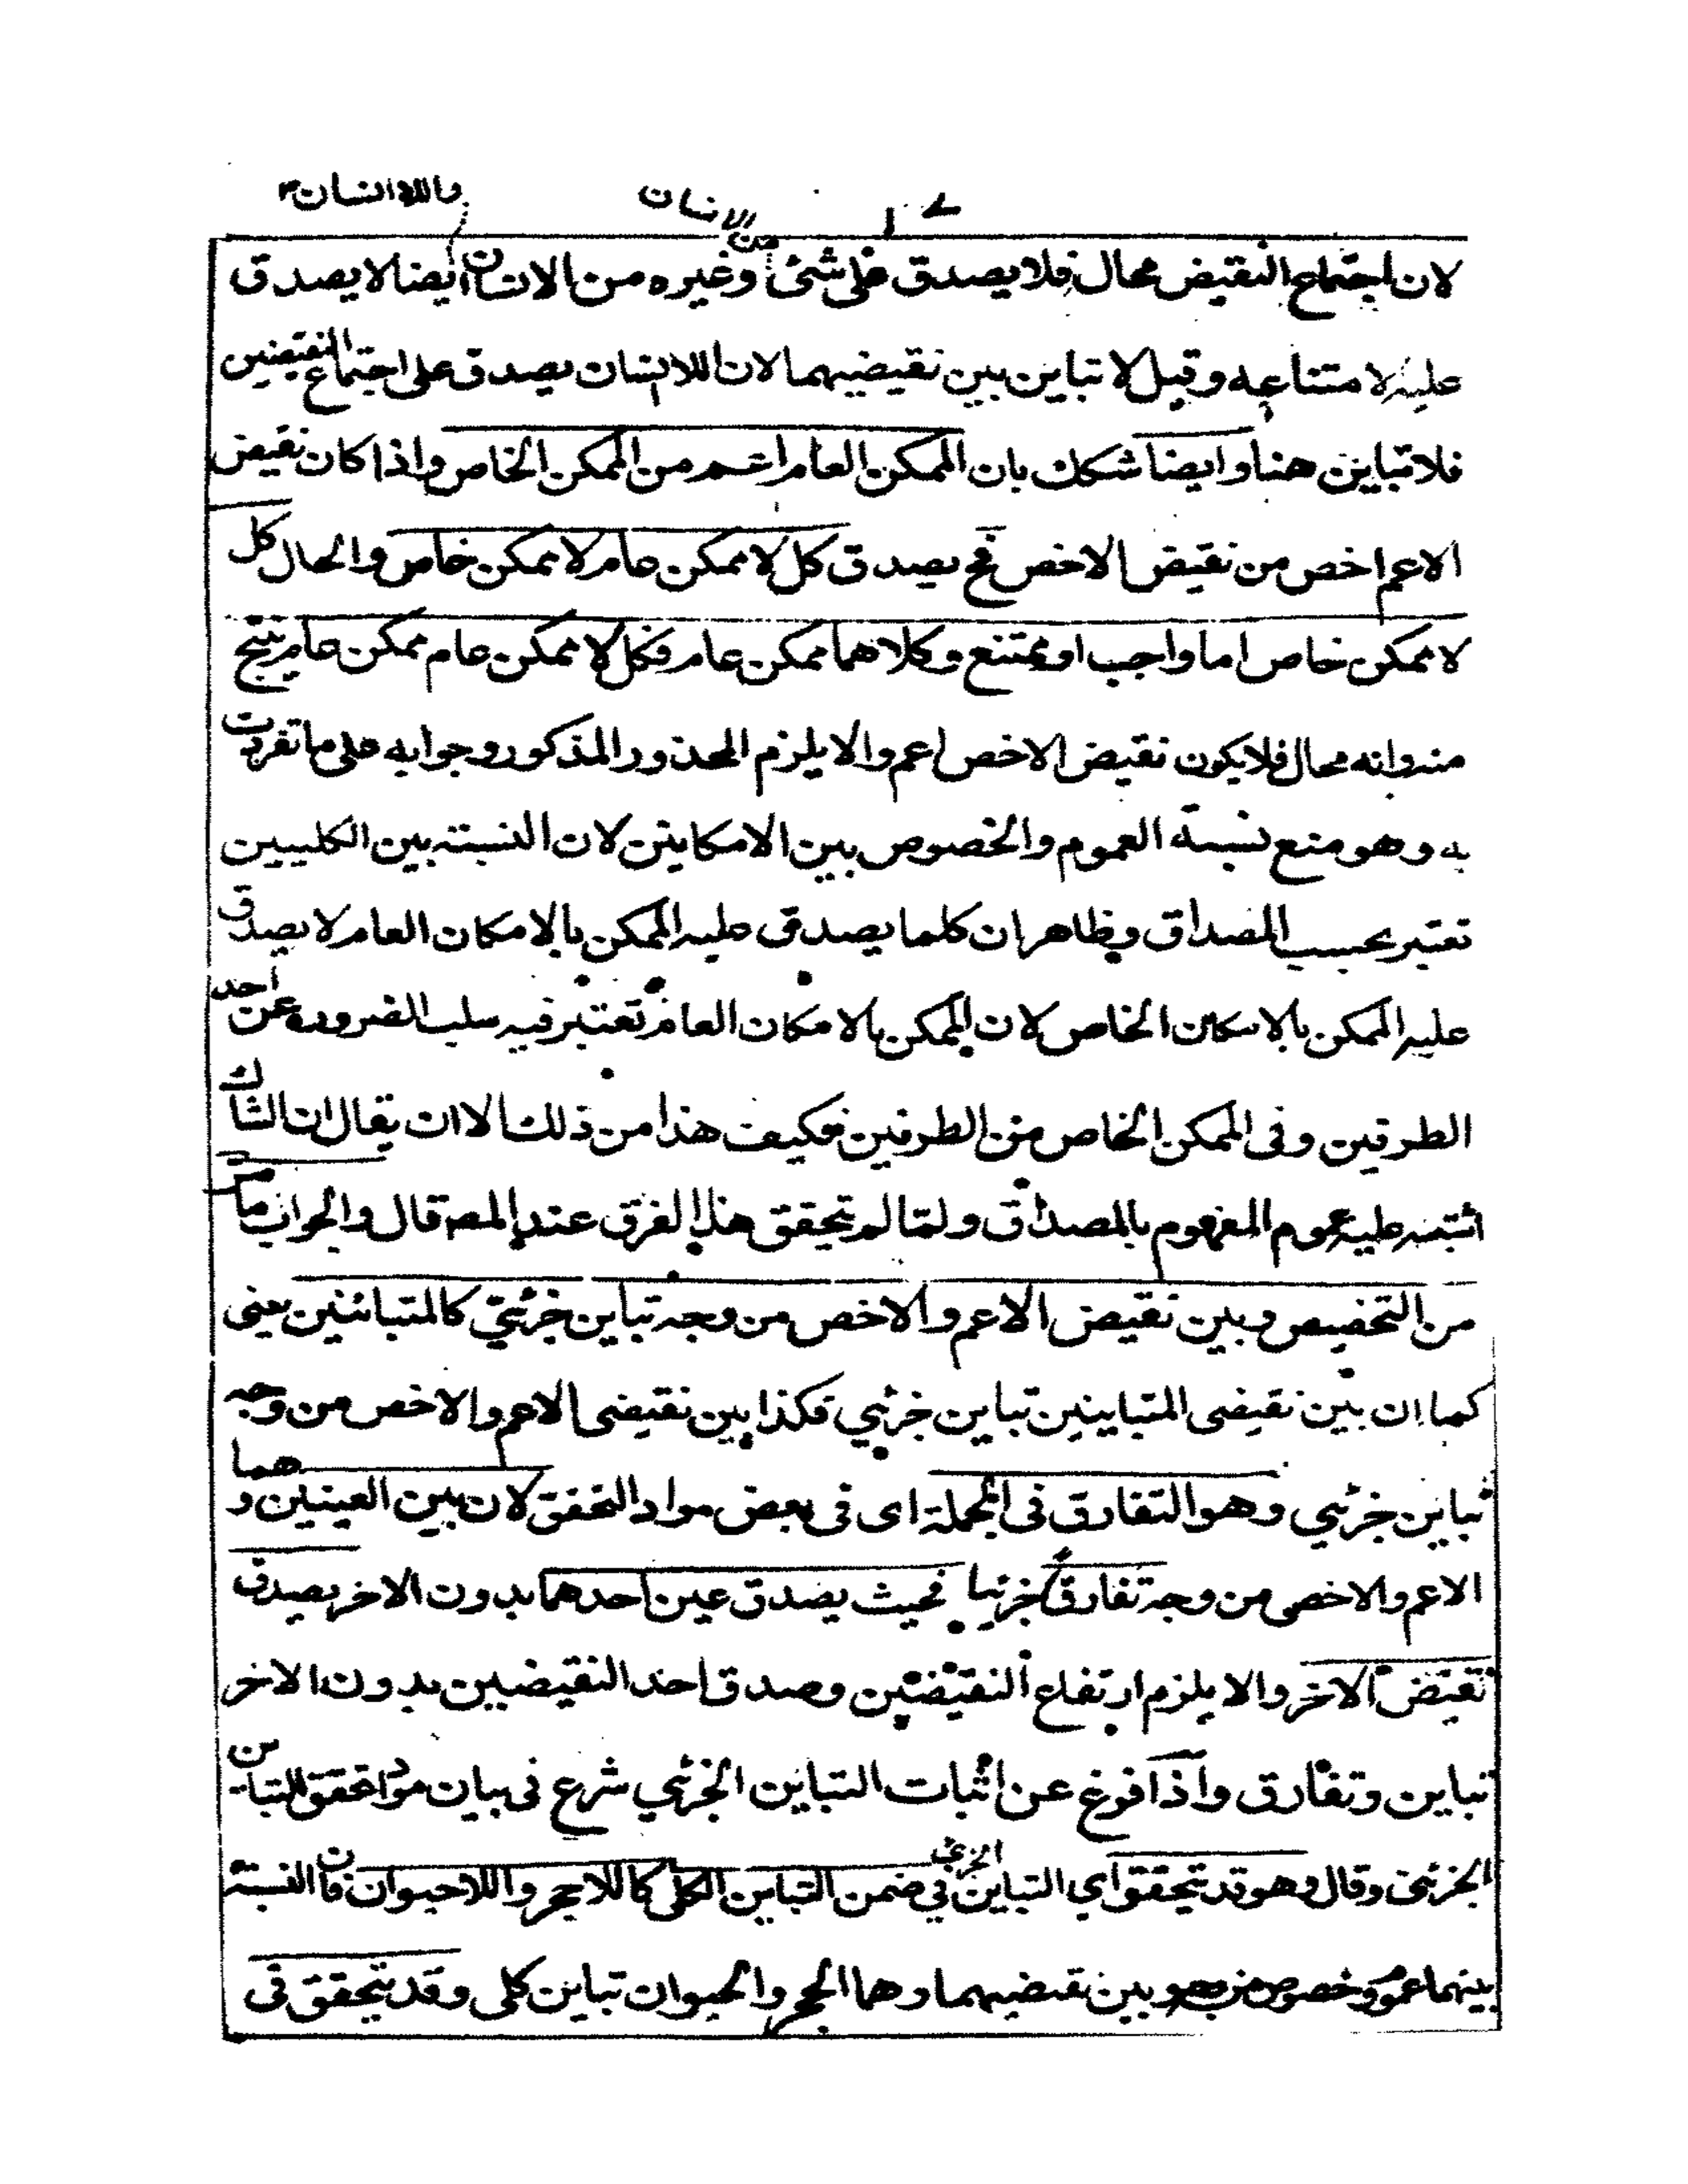 واللاانسان
الانسان
من
لان اجتماع النقيض محال فلا يصدق على شئ وغيره من الانسان ايضا لا يصدق
عليه لامتناعه وقيل لا تباين بين نقيضيهما لان اللاانسان يصدق على اجتماع النقيضين
فلا تباين هنا وايضا شكك بان الممكن العام اعم من الممكن الخاص واذا كان نقيض
الاعم اخص من نقيض الاخص فح يصدق كل لا ممكن عام لا ممكن خاص والحال كل
لا ممكن خاص اما واجب او ممتنع وكلاهما ممكن عام فكل لا ممكن عام ممكن عام ينتج
منه وانه محال فلا يكون نقيض الاخص اعم والا يلزم المحذور المذكور وجوابه على ما تفردت
به وهو منع نسبة العموم والخصوص بين الامكانين لان النسبته بين الكليين
تعتبر بحسب المصداق وظاهر ان كلما يصدق عليه الممكن بالامكان العام لا يصدق
عليه الممكن بالامكان الخاص لان الممكن بالامكان العام تعتبر فيه سلب الضروره عن احد
الطرفين وفى الممكن الخاص من الطرفين فكيف هذا من ذلك الا ان يقال ان الشاك
اشتبه عليه عموم المفهوم بالمصداق ولما لم تحقق هذا الفرق عند المصر قال والجواب ما مر
من التخصيص وبين نقيض الاعم والاخص من وجه تباين جزئي كالمتبائنين يعنى
كما ان بين نقيضى المتباينين تباين جزئي فكذا بين نقيضى الاعم والاخص من وجه
تباين جزئي وهو التفارق فى الجملة اى فى بعض مواد التحقق لان بين العينين وهما
الاعم والاخص من وجه تفارق جزئيا فحيث يصدق عين احدهما بدون الاخر يصدق
نقيض الاخر والا يلزم ارتفاع النقيضين وصدق احد النقيضين بدون الاخر
تباين وتفارق واذا فرغ عن اثبات التباين الجزئي شرع فى بيان مواد تحقق التباين
الجزئى وقال وهو قد يتحقق اي التباين الجزئي في ضمن التباين الكلى كاللاحجر واللاحيوان فان النسبة
بينهما عموم وخصوص من وجه وبين نقيضيهما وهما الحجر والحيوان تباين كلى وقد يتحقق فى